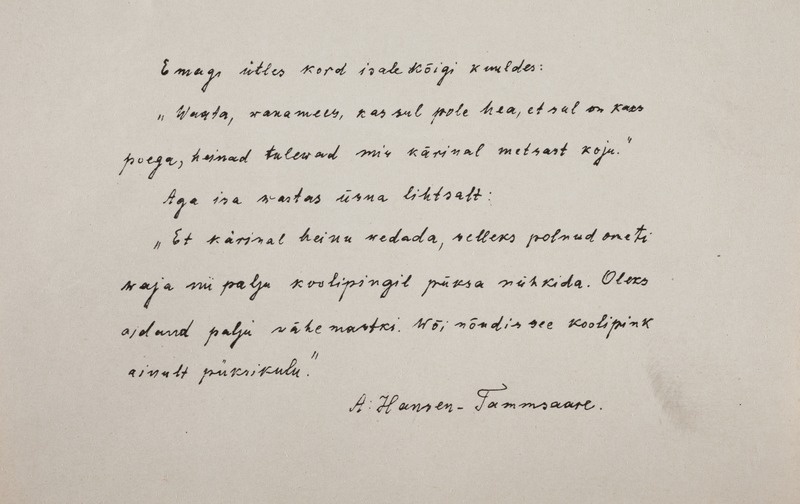 Emagi ütles kord isale kõigi kuuldes:
„Waata, wanamees, kas sul pole hea, et sul on kaks
poega, heinad tulewad mis kärinal metsast koju."
Aga isa wastas üsna lihtsalt:
„Et kärinal heinu wedada, selleks polnud ometi
waja nii palju koolipingil püksa nühkida. Oleks
aidand palju vähemastki. Wõi nõudis see koolipink
ainult püksikulu."
A. Hansen-Tammsaare.